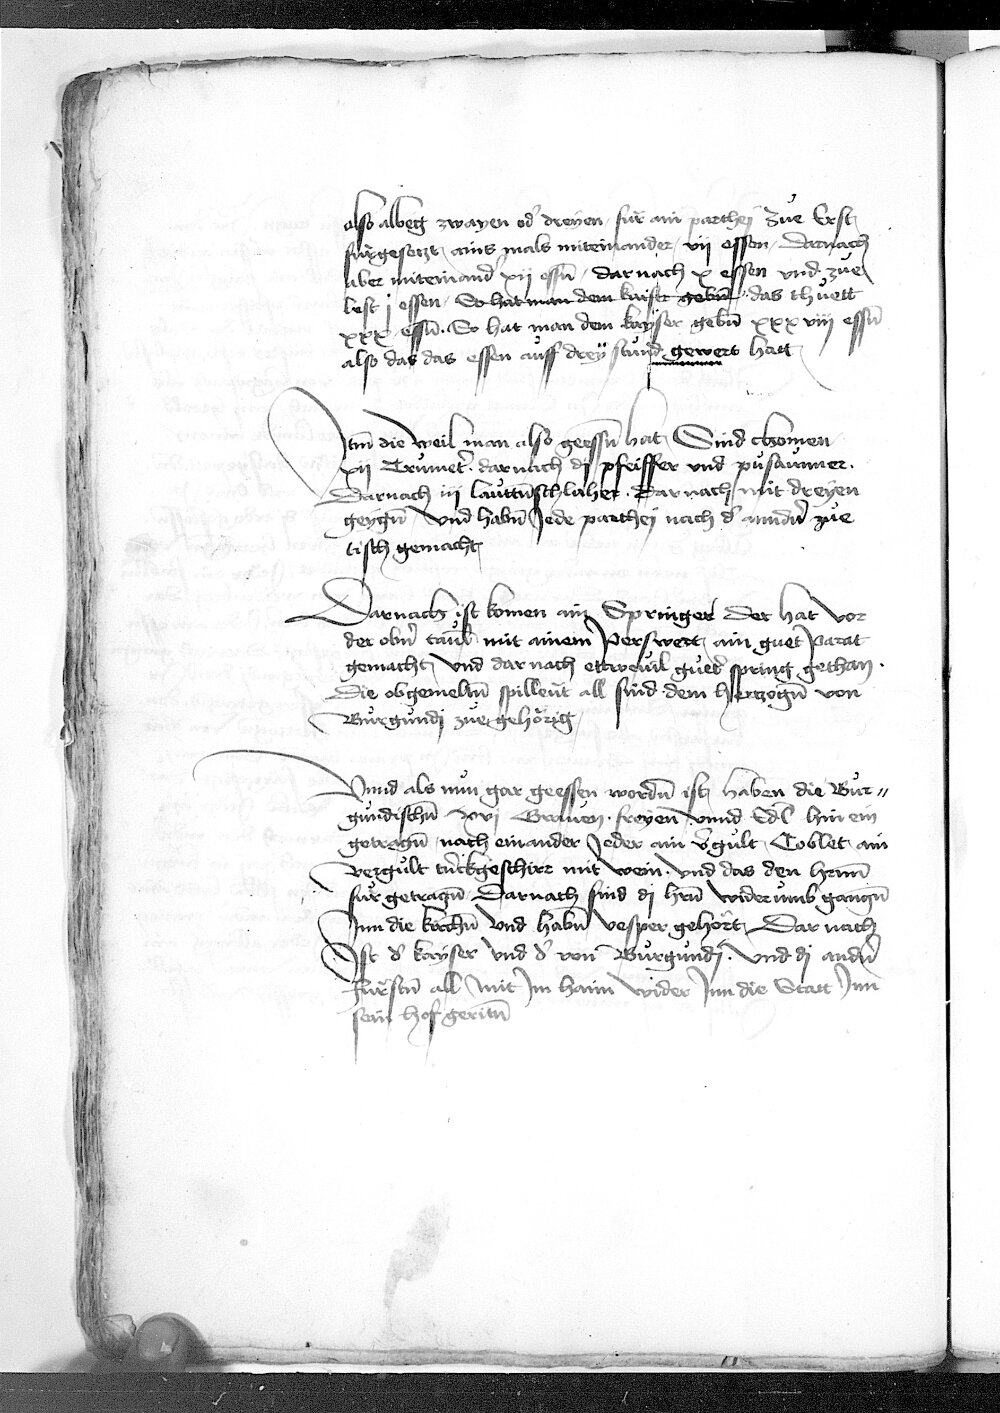 also albeg zwayen od' dreyen / fur ain parthej Zue Erst
furgesetzt / ains mals miteinander / vii essen / Darnach
aber miteinand' xii essn̄ / darnach x essen vnd zue
lest j essen / So hat man dem kaiser gebn̄ / das thuett
xxx essn̄ . So hat man dem kayser gebn̄ xxxviii essn̄
also das das essen auff drey stund gewert hatt
Itm̄ die weil man also geessn̄ hat / Sind chomen
xii Trumet' . darnach dj pfeiffer vnd pusaumer .
Darnach iij lauttn̄schlaher . Darnach mit dreyen
geygn̄ / vnd habn̄ Jede parthej nach d' anndn̄ zue
tisch gemacht
Darnach ist komen ain Springer der hat vor
der obn̄ tauel mit ainem Perswert / ain guet Parat
gemacht / vnd darnach ettweuil guet' spring gethan .
Die obgemeltn̄ spilleut all sind dem hertzogn̄ von
Burgundj zuegehörig
Vnnd als nun gar geessen wordn̄ ist / haben die Bur=
gundischn̄ xvj Grauen . freyen vnnd Edl hinein
getragn̄ / nach einander Jeder ain v'gult Coblet / ain
vergult trīckgeschirr mit wein . vnd das den hrnn̄
furgetragn̄ Darnach sind dj hrn̄ widerumb gangn̄
Inn die kirchn̄ vnd habn̄ vesper gehört / Darnach
Ist d' kayser vnd d' von Burgundj . vnd dj andn̄
furstn̄ all mit Im haim wider Inn die Statt Inn
sein hof geritn̄